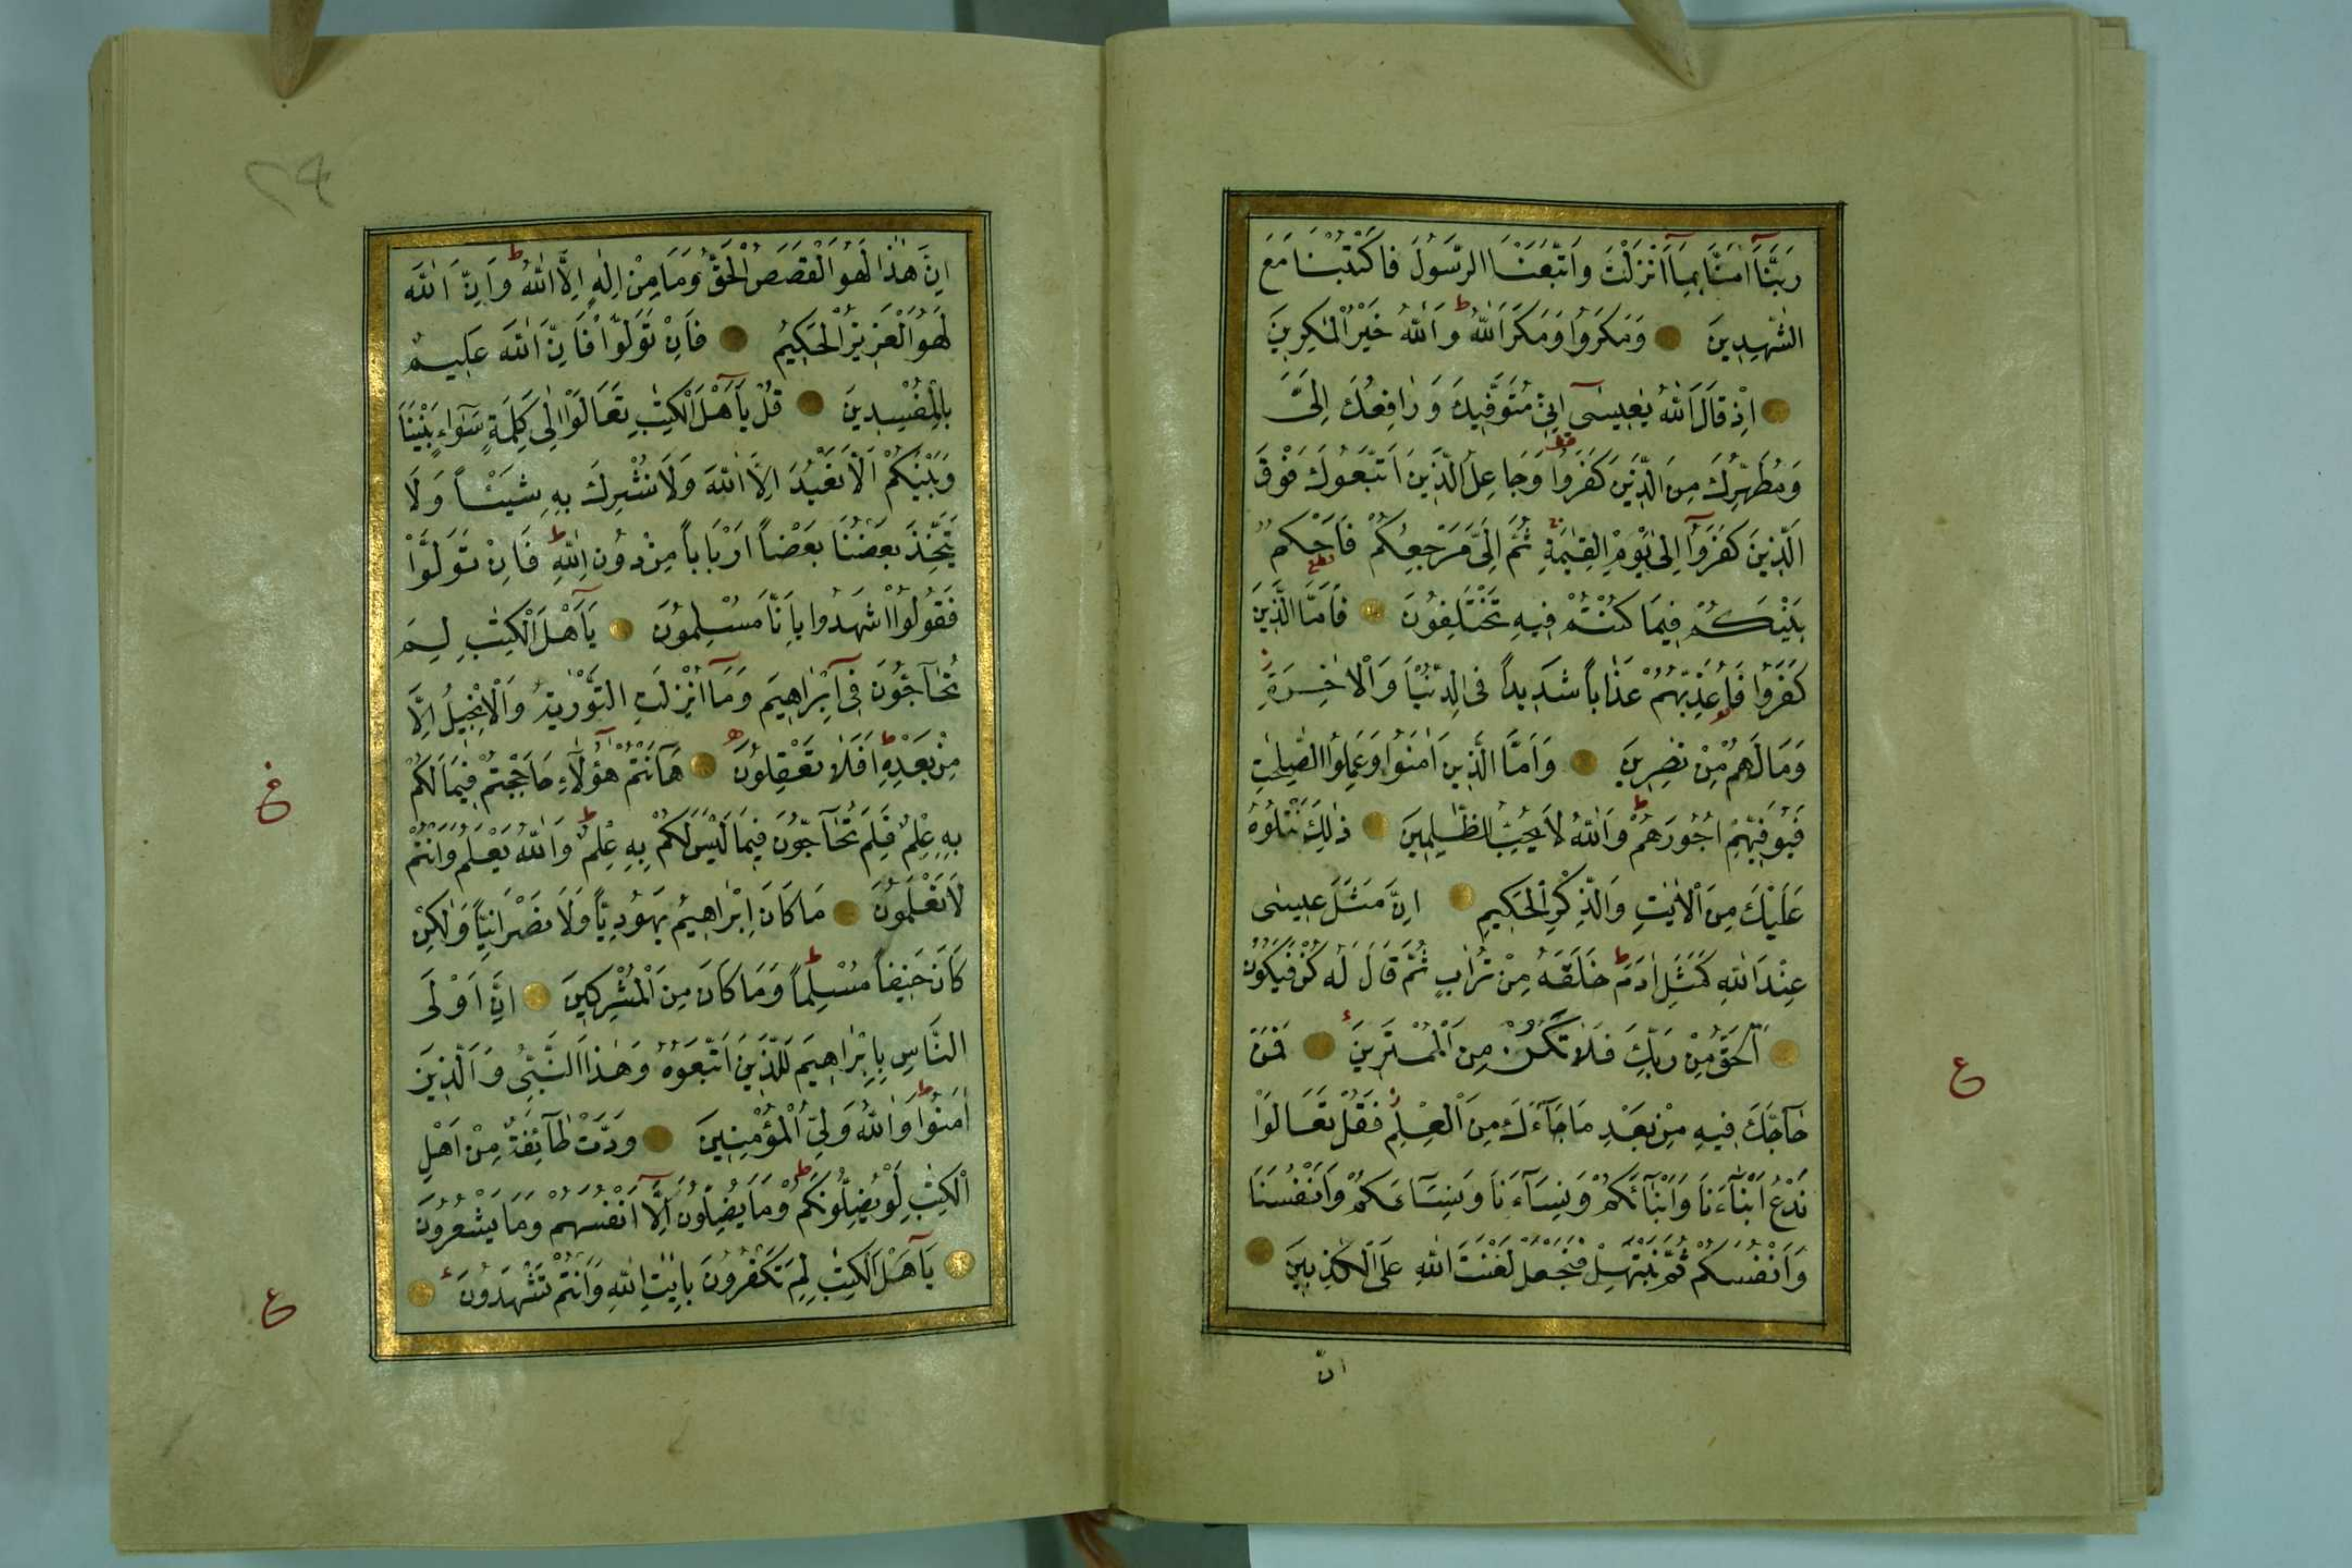 رَبَّنَآ اٰمَنَّا بِمَآ اَنْزَلْتَ وَاتَّبَعْنَا الرَّسُولَ فَاكْتُبْنَا مَعَ
الشّٰهِدِينَ وَمَكَرُوا وَمَكَرَ اللّٰهُ ط وَاللّٰهُ خَيْرُ الْمٰكِرِينَ
اِذْ قَالَ اللّٰهُ يٰعِيسٰٓى اِنِّى مُتَوَفِّيكَ وَرَافِعُكَ اِلَىَّ
وَمُطَهِّرُكَ مِنَ الَّذِينَ كَفَرُوا وَجَاعِلُ الَّذِينَ اتَّبَعُوكَ فَوْقَ
الَّذِينَ كَفَرُوٓا اِلٰى يَوْمِ الْقِيٰمَةِ ثُمَّ اِلَىَّ مَرْجِعُكُمْ فَاَحْكُمُ
بَيْنَكُمْ فِيمَا كُنْتُمْ فِيهِ تَخْتَلِفُونَ فَاَمَّا الَّذِينَ
كَفَرُوا فَاُعَذِّبُهُمْ عَذَاباً شَدِيداً فِى الدُّنْيَا وَالْاٰخِرَةِ
وَمَا لَهُمْ مِنْ نٰصِرِينَ وَاَمَّا الَّذِينَ اٰمَنُوا وَعَمِلُوا الصّٰلِحٰتِ
فَيُوَفِّيهِمْ اُجُورَهُمْ ط وَاللّٰهُ لَا يُحِبُّ الظّٰلِمِينَ ذٰلِكَ نَتْلُوهُ
عَلَيْكَ مِنَ الْاٰيٰتِ وَالذِّكْرِ الْحَكِيمِ اِنَّ مَثَلَ عِيسٰى
عِنْدَ اللّٰهِ كَمَثَلِ اٰدَمَ ط خَلَقَهُ مِنْ تُرَابٍ ثُمَّ قَالَ لَهُ كُنْ فَيَكُونُ
اَلْحَقُّ مِنْ رَبِّكَ فَلَا تَكُنْ مِنَ الْمُمْتَرِينَ فَمَنْ
حَآجَّكَ فِيهِ مِنْ بَعْدِ مَا جَآءَكَ مِنَ الْعِلْمِ فَقُلْ تَعَالَوْا
نَدْعُ اَبْنَآءَنَا وَاَبْنَآءَكُمْ وَنِسَآءَنَا وَنِسَآءَكُمْ وَاَنْفُسَنَا
وَاَنْفُسَكُمْ ثُمَّ نَبْتَهِلْ فَنَجْعَلْ لَعْنَتَ اللّٰهِ عَلَى الْكٰذِبِينَ
انّ
ع
٢٩
اِنَّ هٰذَا لَهُوَ الْقَصَصُ الْحَقُّ وَمَا مِنْ اِلٰهٍ اِلَّا اللّٰهُ ط وَاِنَّ اللّٰهَ
لَهُوَ الْعَزِيزُ الْحَكِيمُ فَاِنْ تَوَلَّوْا فَاِنَّ اللّٰهَ عَلِيمٌ
بِالْمُفْسِدِينَ قُلْ يَآ اَهْلَ الْكِتٰبِ تَعَالَوْا اِلٰى كَلِمَةٍ سَوَآءٍ بَيْنَنَا
وَبَيْنَكُمْ اَلَّا نَعْبُدَ اِلَّا اللّٰهَ وَلَا نُشْرِكَ بِهِ شَيْئاً وَلَا
يَتَّخِذَ بَعْضُنَا بَعْضاً اَرْبَاباً مِنْ دُونِ اللّٰهِ ط فَاِنْ تَوَلَّوْا
فَقُولُوا اشْهَدُوا بِاَنَّا مُسْلِمُونَ يَآ اَهْلَ الْكِتٰبِ لِمَ
تُحَآجُّونَ فِىٓ اِبْرَاهِيمَ وَمَآ اُنْزِلَتِ التَّوْرٰيةُ وَالْاِنْجِيلُ اِلَّا
مِنْ بَعْدِهِ ط اَفَلَا تَعْقِلُونَ هَآ اَنْتُمْ هٰٓؤُلَآءِ حَاجَجْتُمْ فِيمَا لَكُمْ
بِهِ عِلْمٌ فَلِمَ تُحَآجُّونَ فِيمَا لَيْسَ لَكُمْ بِهِ عِلْمٌ ط وَاللّٰهُ يَعْلَمُ وَاَنْتُمْ
لَا تَعْلَمُونَ مَا كَانَ اِبْرَاهِيمُ يَهُودِيّاً وَلَا نَصْرَانِيّاً وَلٰكِنْ
كَانَ حَنِيفاً مُسْلِماً ط وَمَا كَانَ مِنَ الْمُشْرِكِينَ اِنَّ اَوْلَى
النَّاسِ بِاِبْرَاهِيمَ لَلَّذِينَ اتَّبَعُوهُ وَهٰذَا النَّبِىُّ وَالَّذِينَ
اٰمَنُوا ط وَاللّٰهُ وَلِىُّ الْمُؤْمِنِينَ وَدَّتْ طَآئِفَةٌ مِنْ اَهْلِ
الْكِتٰبِ لَوْ يُضِلُّونَكُمْ ط وَمَا يُضِلُّونَ اِلَّآ اَنْفُسَهُمْ وَمَا يَشْعُرُونَ
يَآ اَهْلَ الْكِتٰبِ لِمَ تَكْفُرُونَ بِاٰيٰتِ اللّٰهِ وَاَنْتُمْ تَشْهَدُونَ
ع